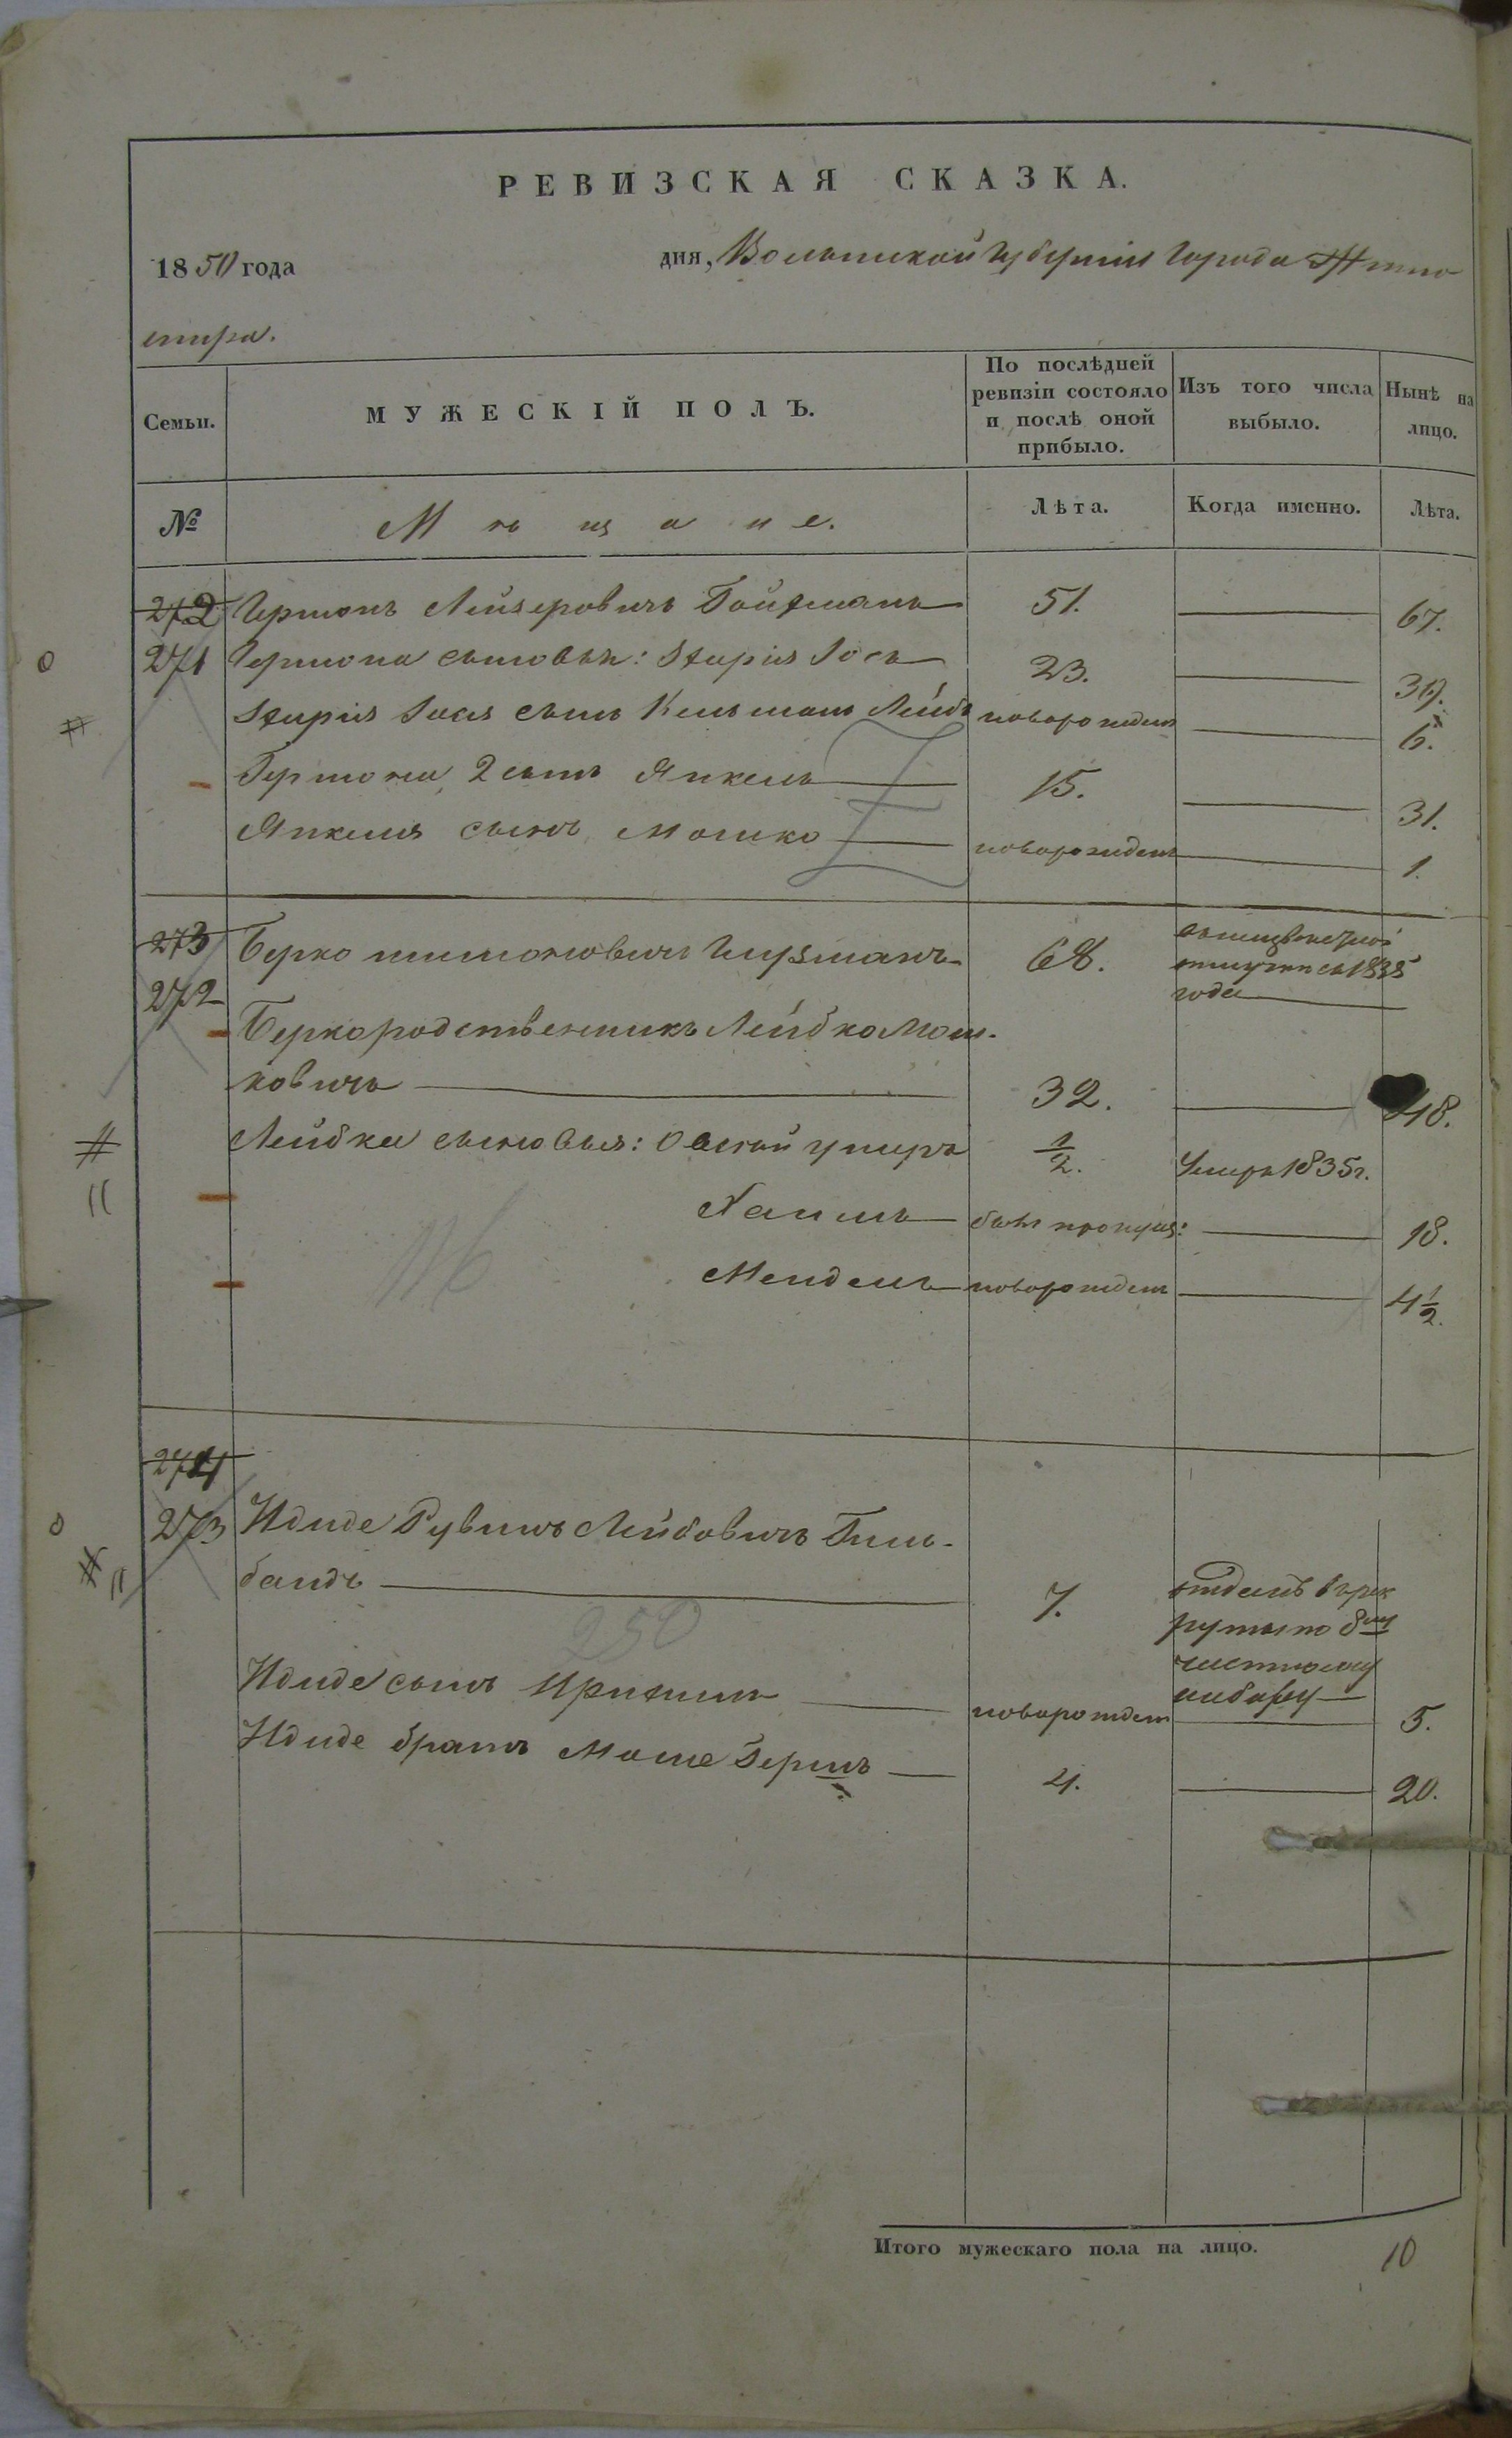 РЕВИЗСКАЯ СКАЗКА.
1850 года дня, Волынской Губерніи Города Жито-
мира.
Семьи.
МУЖЕСКІЙ ПОЛЪ.
По послѣдней ревизіи состояло и послѣ оной прибыло.
Изъ того числа выбыло.
Нынѣ на лицо.
№
Мѣщане.
Лѣта.
Когда именно.
Лѣта.
272 Гершонъ Лейзеровичъ Гойфманъ 51. 67.
271 Гершона сыновья: Іось 23. 39.
Іося сынъ Кельманъ Лейбъ новорожден 6.
Гершона 2 сынъ Янкель 15. 31.
Янкеля сынъ Мошко новорожден 1.
273 Берко Шимоновичъ 68. отлучкѣ съ 1835
272 года
Берко родственникъ Лейбко Мош-
ковичъ 32. 48.
Лейбка сыновья: умеръ 1/2. Умеръ 1835г.
Хаимъ былъ пропущ: 18.
Мендель новорожден 4 1/2.
274
273 Идиде Рувинъ Лейбовичъ Гиль-
бандъ 7. отданъ в рек
руты по 8му
частному
набору
Идиде сынъ новорожден 5.
Идиде братъ Моше Гершъ 4. 20.
250
Итого мужескаго пола на лицо. 10